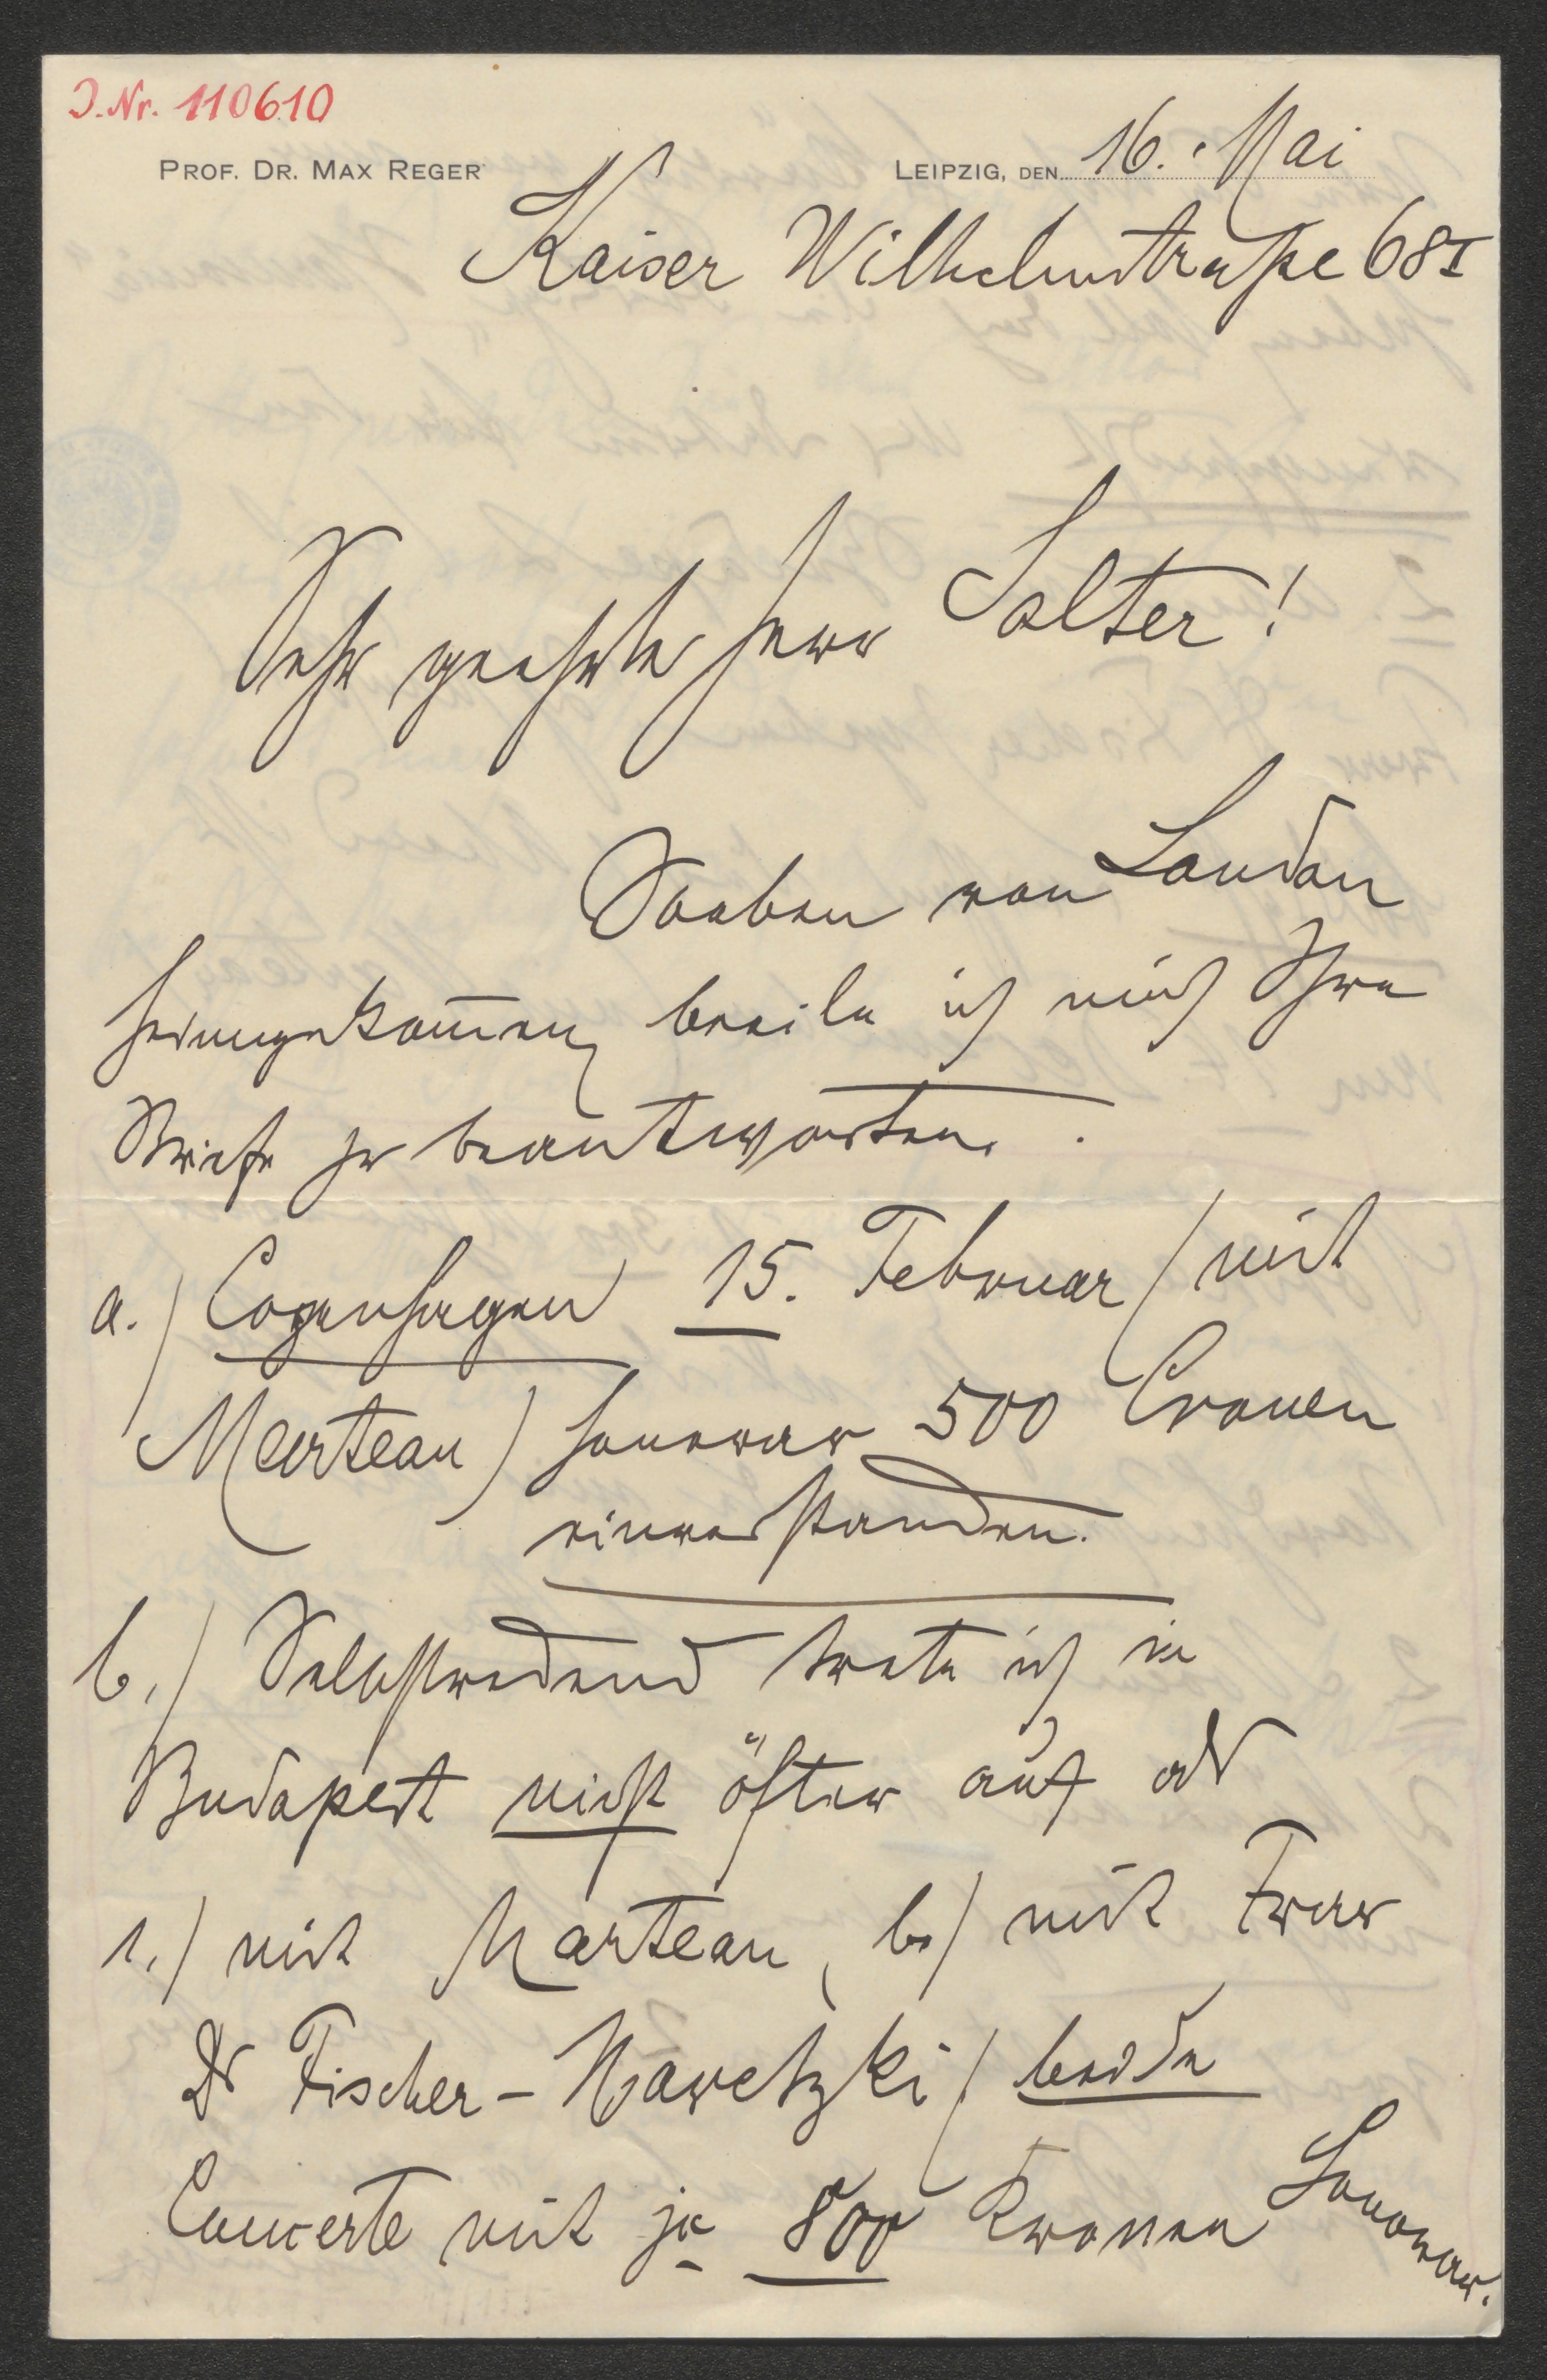 J.Nr. 110610
PROF. DR. MAX REGER
LEIPZIG, DEN 16. Mai
Kaiser Wilhelmstraße 68I
Sehr geehrter Herr Salter!
Soeben von London
heimgekom̅en, beeile ich mich Ihre
Briefe zu beantworten.
a.) Copenhagen 15. Februar (mit
Marteau) Honorar 500 Cronen
einverstanden.
b.) Selbstredend trete ich in
Budapest nicht öfter auf als
1.) mit Marteau, b.) mit Frau
Dr Fischer-Maretzki (beide
Concerte mit je 800 Kronen Honorar.